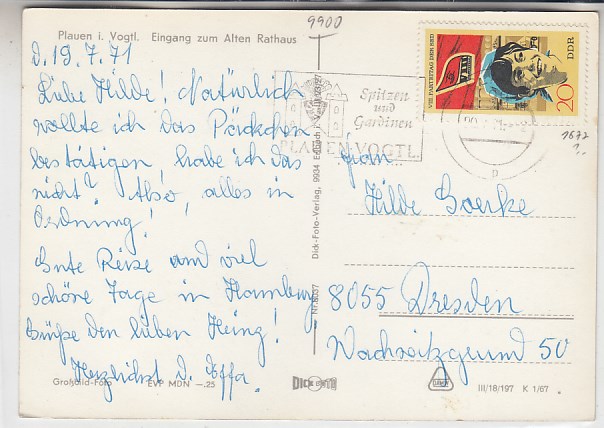 9900
Plauen i. Vogtl. Eingang zum Alten Rathaus
d. 19.7.71
Liebe Hilde, Natürlich
wollte ich das Päckchen
bestätigen, habe ich das
nicht? Also, alles in
Ordnung!
Gute Reise und viel
schöne Tage in Hamburg
Grüße den lieben Heinz!
Herzlichst d. Offa.
Großbild-Foto EVP MDN —.25
Nr. 8037 Dick-Foto-Verlag, 9934 Erlbach i. Vogtl.
DICK
Spitzen
und
Gardinen
PLAUEN VOGTL.
VIII. PARTEITAG DER SED
VIII
DDR
20
1672
1.-
Frau
Hilde Goerke
8055 Dresden
Wachwitzgrund 50
III/18/197 K 1/67